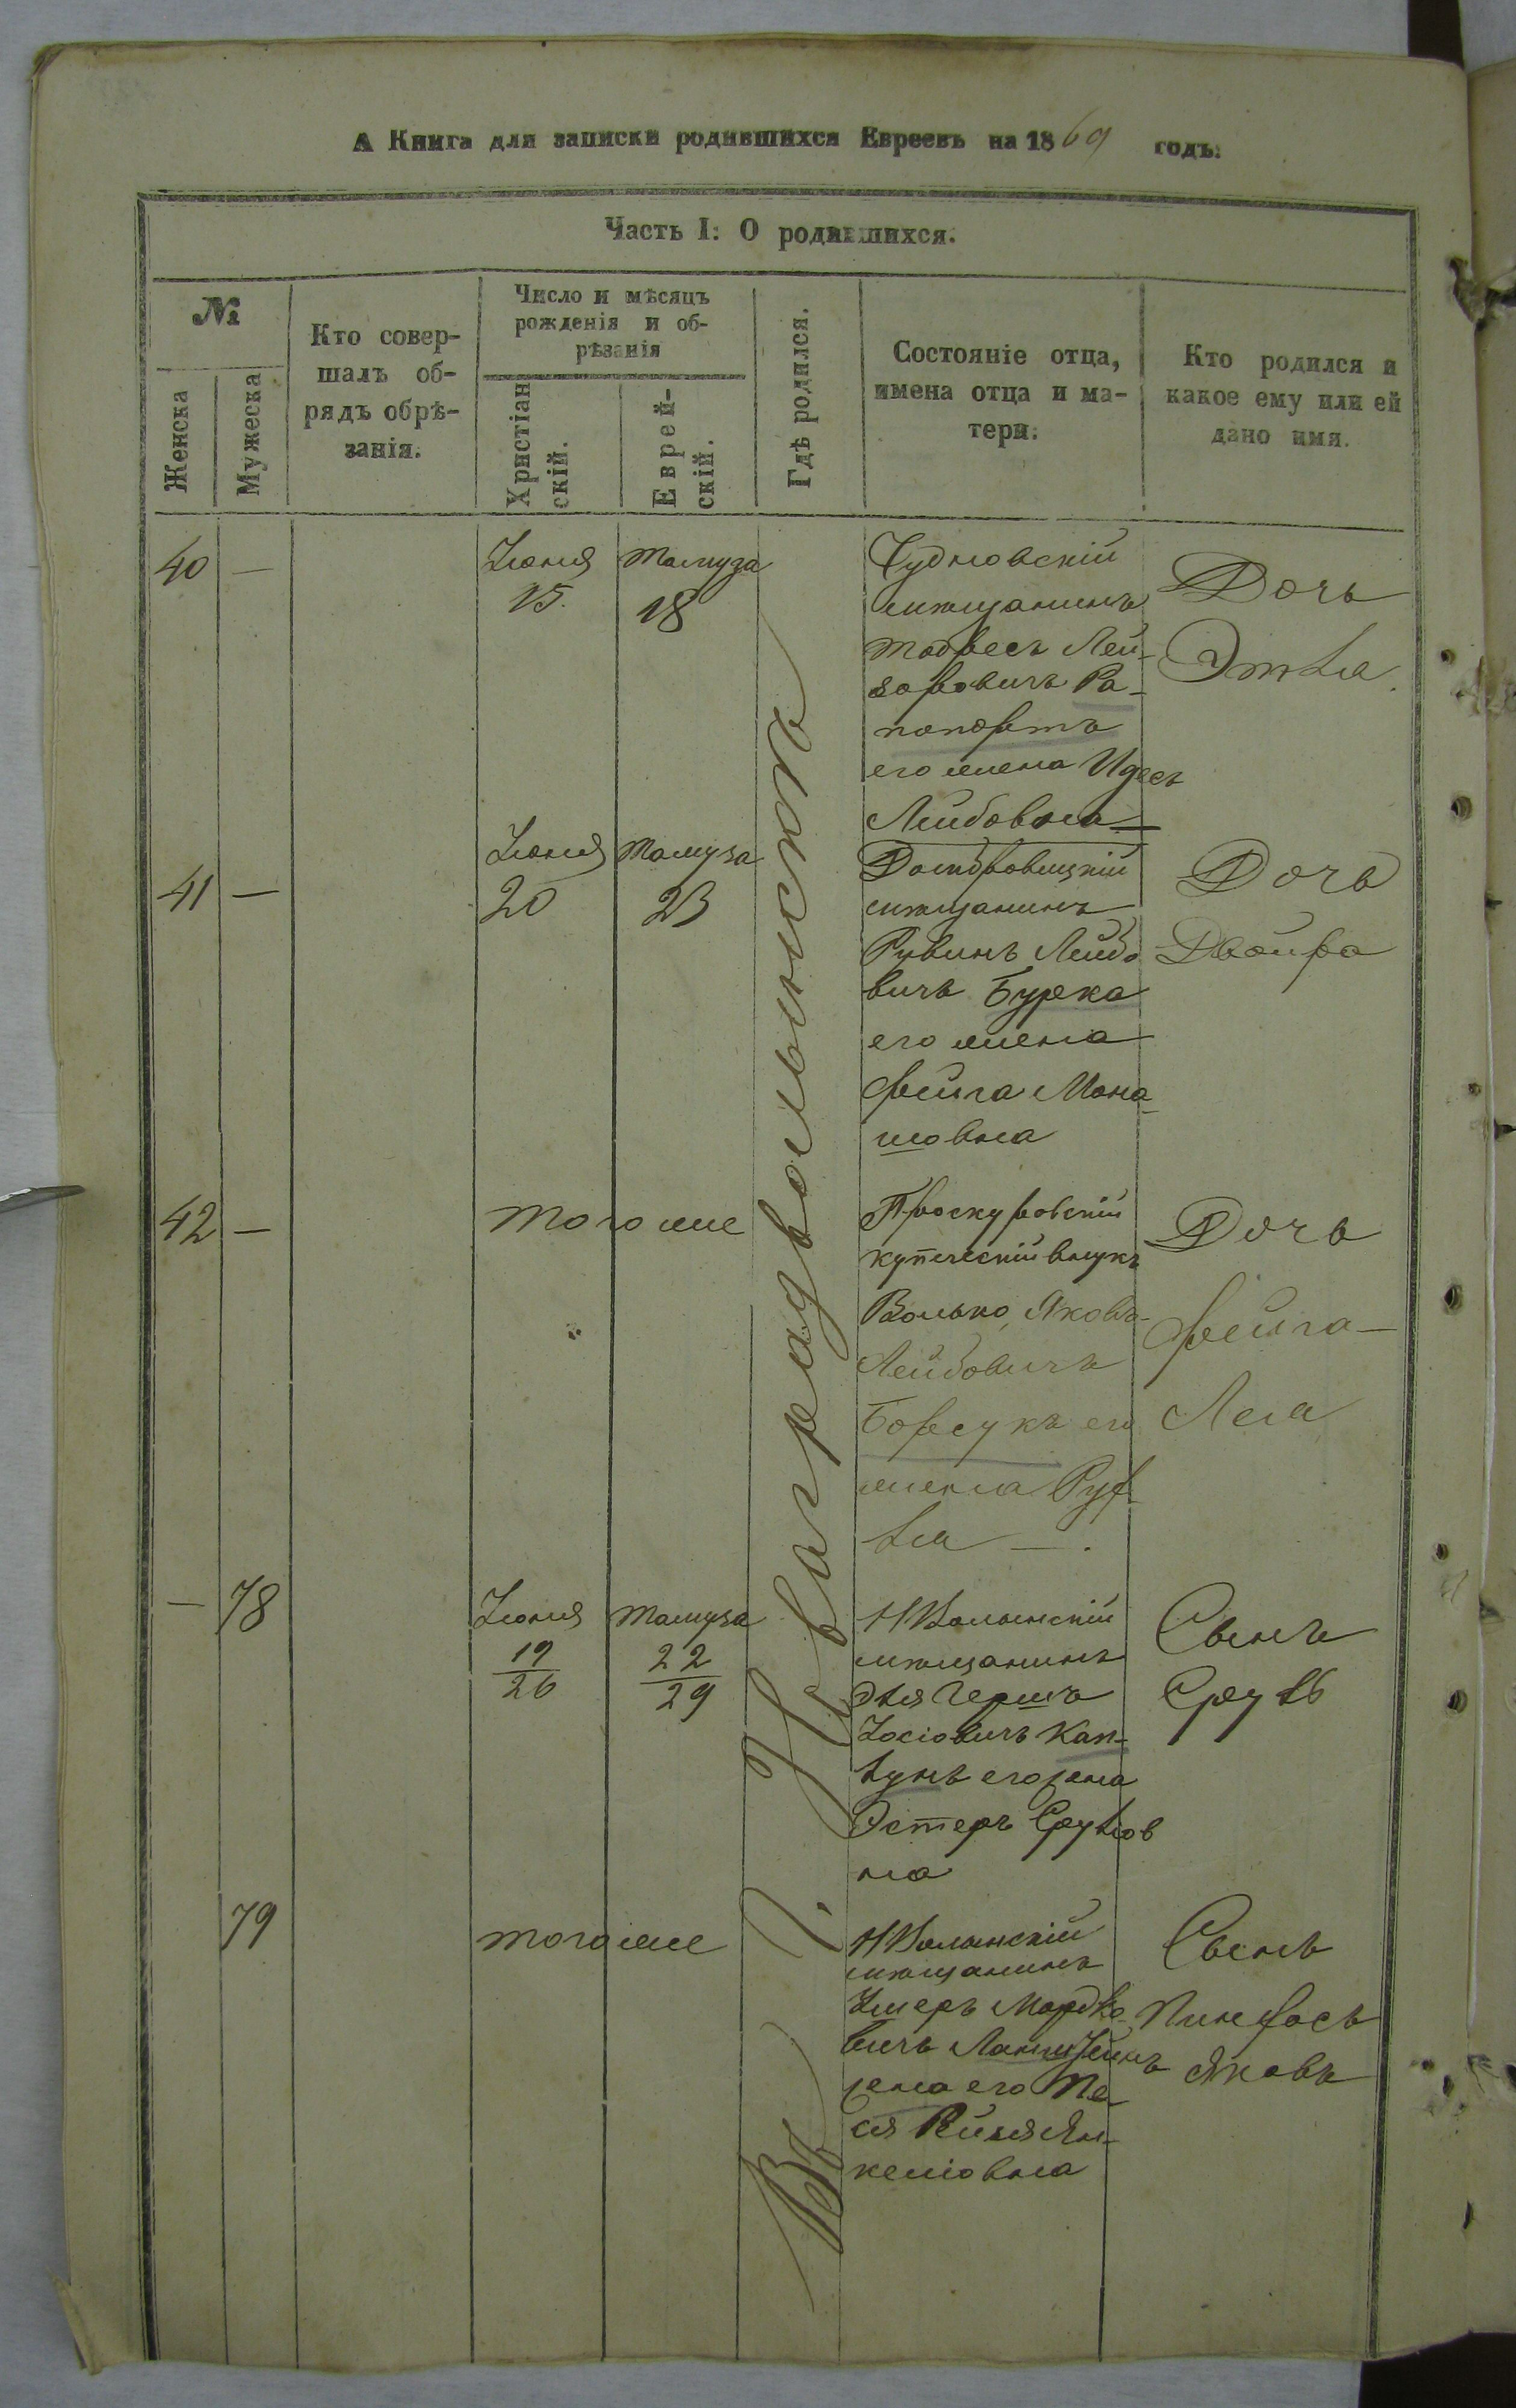 А Книга для записки родившихся Евреевъ на 1869 годъ.
Часть I: О родившихся.
№
Женска
Мужеска
Кто совер-
шалъ об-
рядъ обрѣ-
занія.
Число и мѣсяцъ
рожденія и об-
рѣзанія
Христіан
скій.
Еврей-
скій.
Гдѣ родился.
Состояніе отца,
имена отца и ма-
тери.
Кто родился и
какое ему или ей
дано имя.
Въ г. Новаградволынскѣ
40 —
Іюня
15.
Тамуза
18
Чудновскій
мѣщанинъ
Тодресъ Лей-
зоровичъ Ра-
попортъ
его жена Идесъ
Лейбовна —
Дочь
Этля
41 —
Іюня
20
Тамуза
23
Домбровицкій
мѣщанинъ
Рувинъ Лейбо
вичъ Бурка
его жена
Фейга Мона-
шовна
Дочь
Двойра
42 —
того же
Проскуровскій
купеческій внукъ
Волько Яковъ-
Лейбовичъ
Борсукъ его
жена Рух-
ля — .
Дочь
Фейга —
Лея
— 78
Іюня
19
26
Тамуза
22
29
НВолынскій
мѣщанинъ
Эля Гершъ
Іосіовичъ Кап-
лунъ его жена
Эстеръ Срулов
на
Сынъ
Сруль
79
того же
НВолынскій
мѣщанинъ
Мордко-
вичъ
жена его Пе-
ся Ян-
келіовна
Сынъ
Пинхосъ
Яковъ